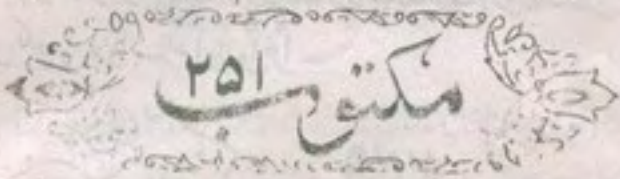 مکتوب ۲۵۱